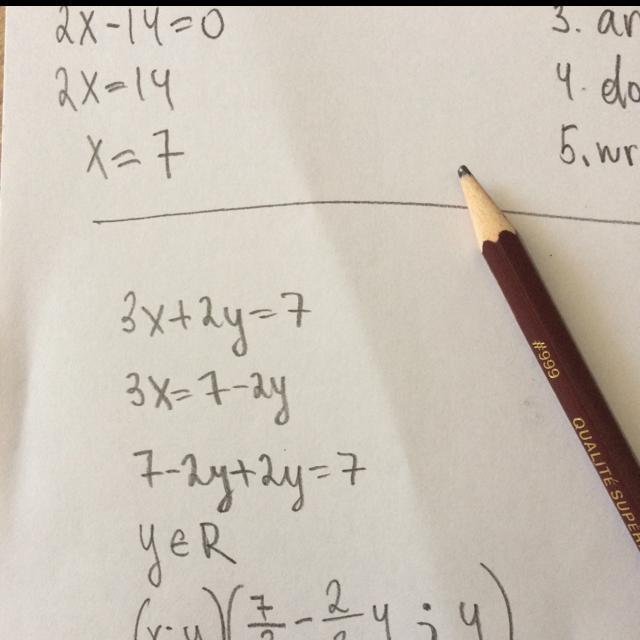 2x-14=0
2x=14
x=7
3. an
4. do
5. wr
3x+2y=7
3x=7-2y
7-2y+2y=7
y∈R
(x;y)(7/3-2/3y;y)
#999 QUALITÉ SUPE